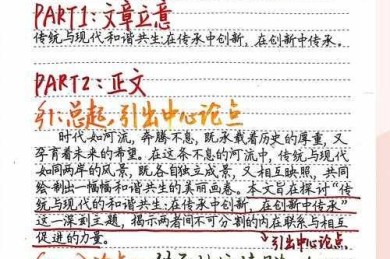 PART1：文章立意
传统与现代和谐共生：在传承中创新，在创新中传承。
PART2：正文
¶1：总起，引出中心论点
时代如河流，奔腾不息，既承载着历史的厚重，又
孕育着未来的希望。在这条不息的河流中，传统与现代
如同两岸的风景，既各自独立成景，又相互映照，共同
绘制出一幅幅和谐共生的美丽画卷。本文旨在探讨“传
统与现代的和谐共生：在传承中创新，在创新中传承”
这一深刻主题，揭示两者间不可分割的内在联系与相互
促进的力量。
引出中心论点